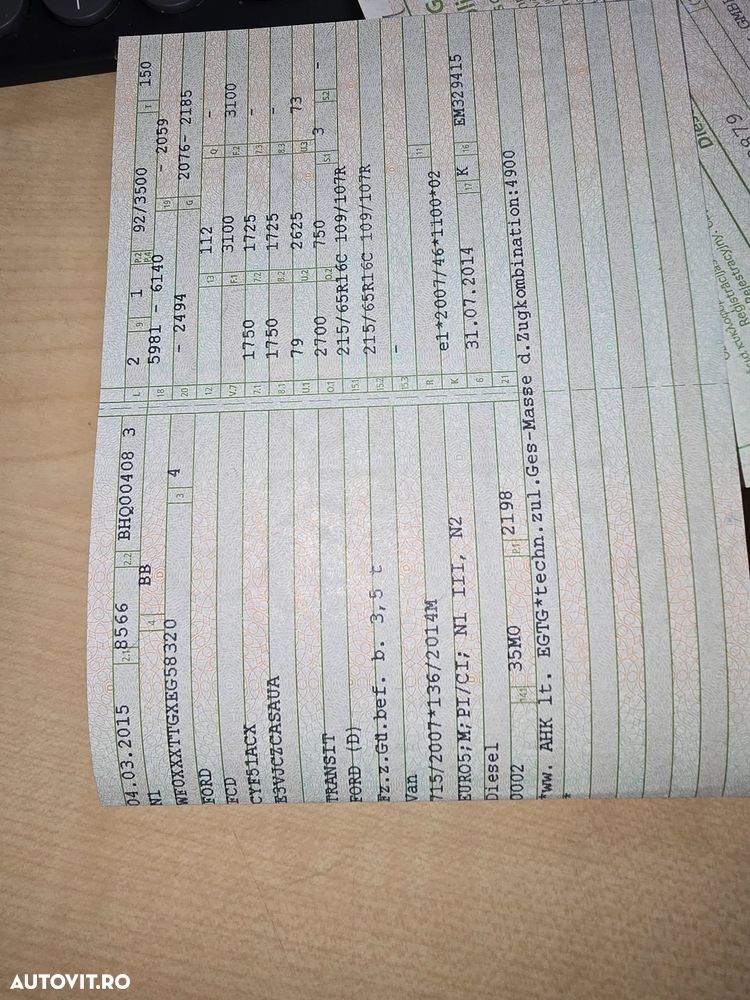 04.03.2015 2.1 8566 2.2 BHQ00408 3
N1 4 BB
WF0XXXTTGXEG58320 3 4
FORD
FCD
CYF51ACX
E3VJCZCASAUA
TRANSIT
FORD (D)
Fz.z.Gü.bef. b. 3,5 t
Van
715/2007*136/2014M
EURO5;M;PI/CI; N1 III, N2
Diesel
0002 14.1 35M0 P.1 2198
*ww. AHK lt. EGTG*techn.zul.Ges-Masse d.Zugkombination:4900
*
L 2 9 1 P.2 P.4 92/3500 T 150
18 5981 - 6140 19 - 2059
20 - 2494 G 2076- 2185
12 13 112 Q -
V.7 F.1 3100 F.2 3100
7.1 1750 7.2 1725 7.3 -
8.1 1750 8.2 1725 8.3 -
U.1 79 U.2 2625 U.3 73
O.1 2700 O.2 750 S.1 3 S.2 -
15.1 215/65R16C 109/107R
15.2 215/65R16C 109/107R
15.3 -
R 11
K e1*2007/46*1100*02
6 31.07.2014 17 K 16 EM329415
21
AUTOVIT.RO